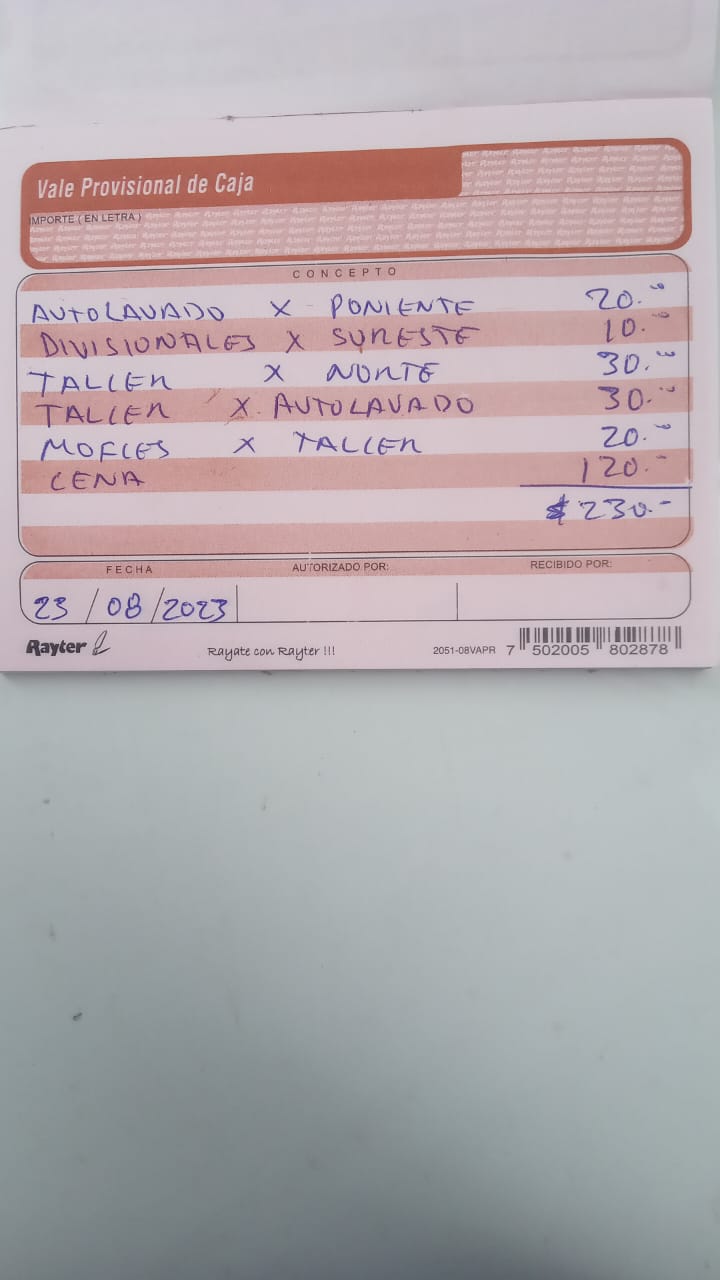 Vale Provisional de Caja
IMPORTE ( EN LETRA )
CONCEPTO
AUTOLAVADO X PONIENTE 20.00
DIVISIONALES X SURESTE 10.00
TALLER X NORTE 30.00
TALLER X AUTOLAVADO 30.00
MOFLES X TALLER 20.-
CENA 120.-
$ 230.-
FECHA AUTORIZADO POR: RECIBIDO POR:
23 / 08 / 2023
Rayter Rayate con Rayter !!! 2051-08VAPR 7 502005 802878